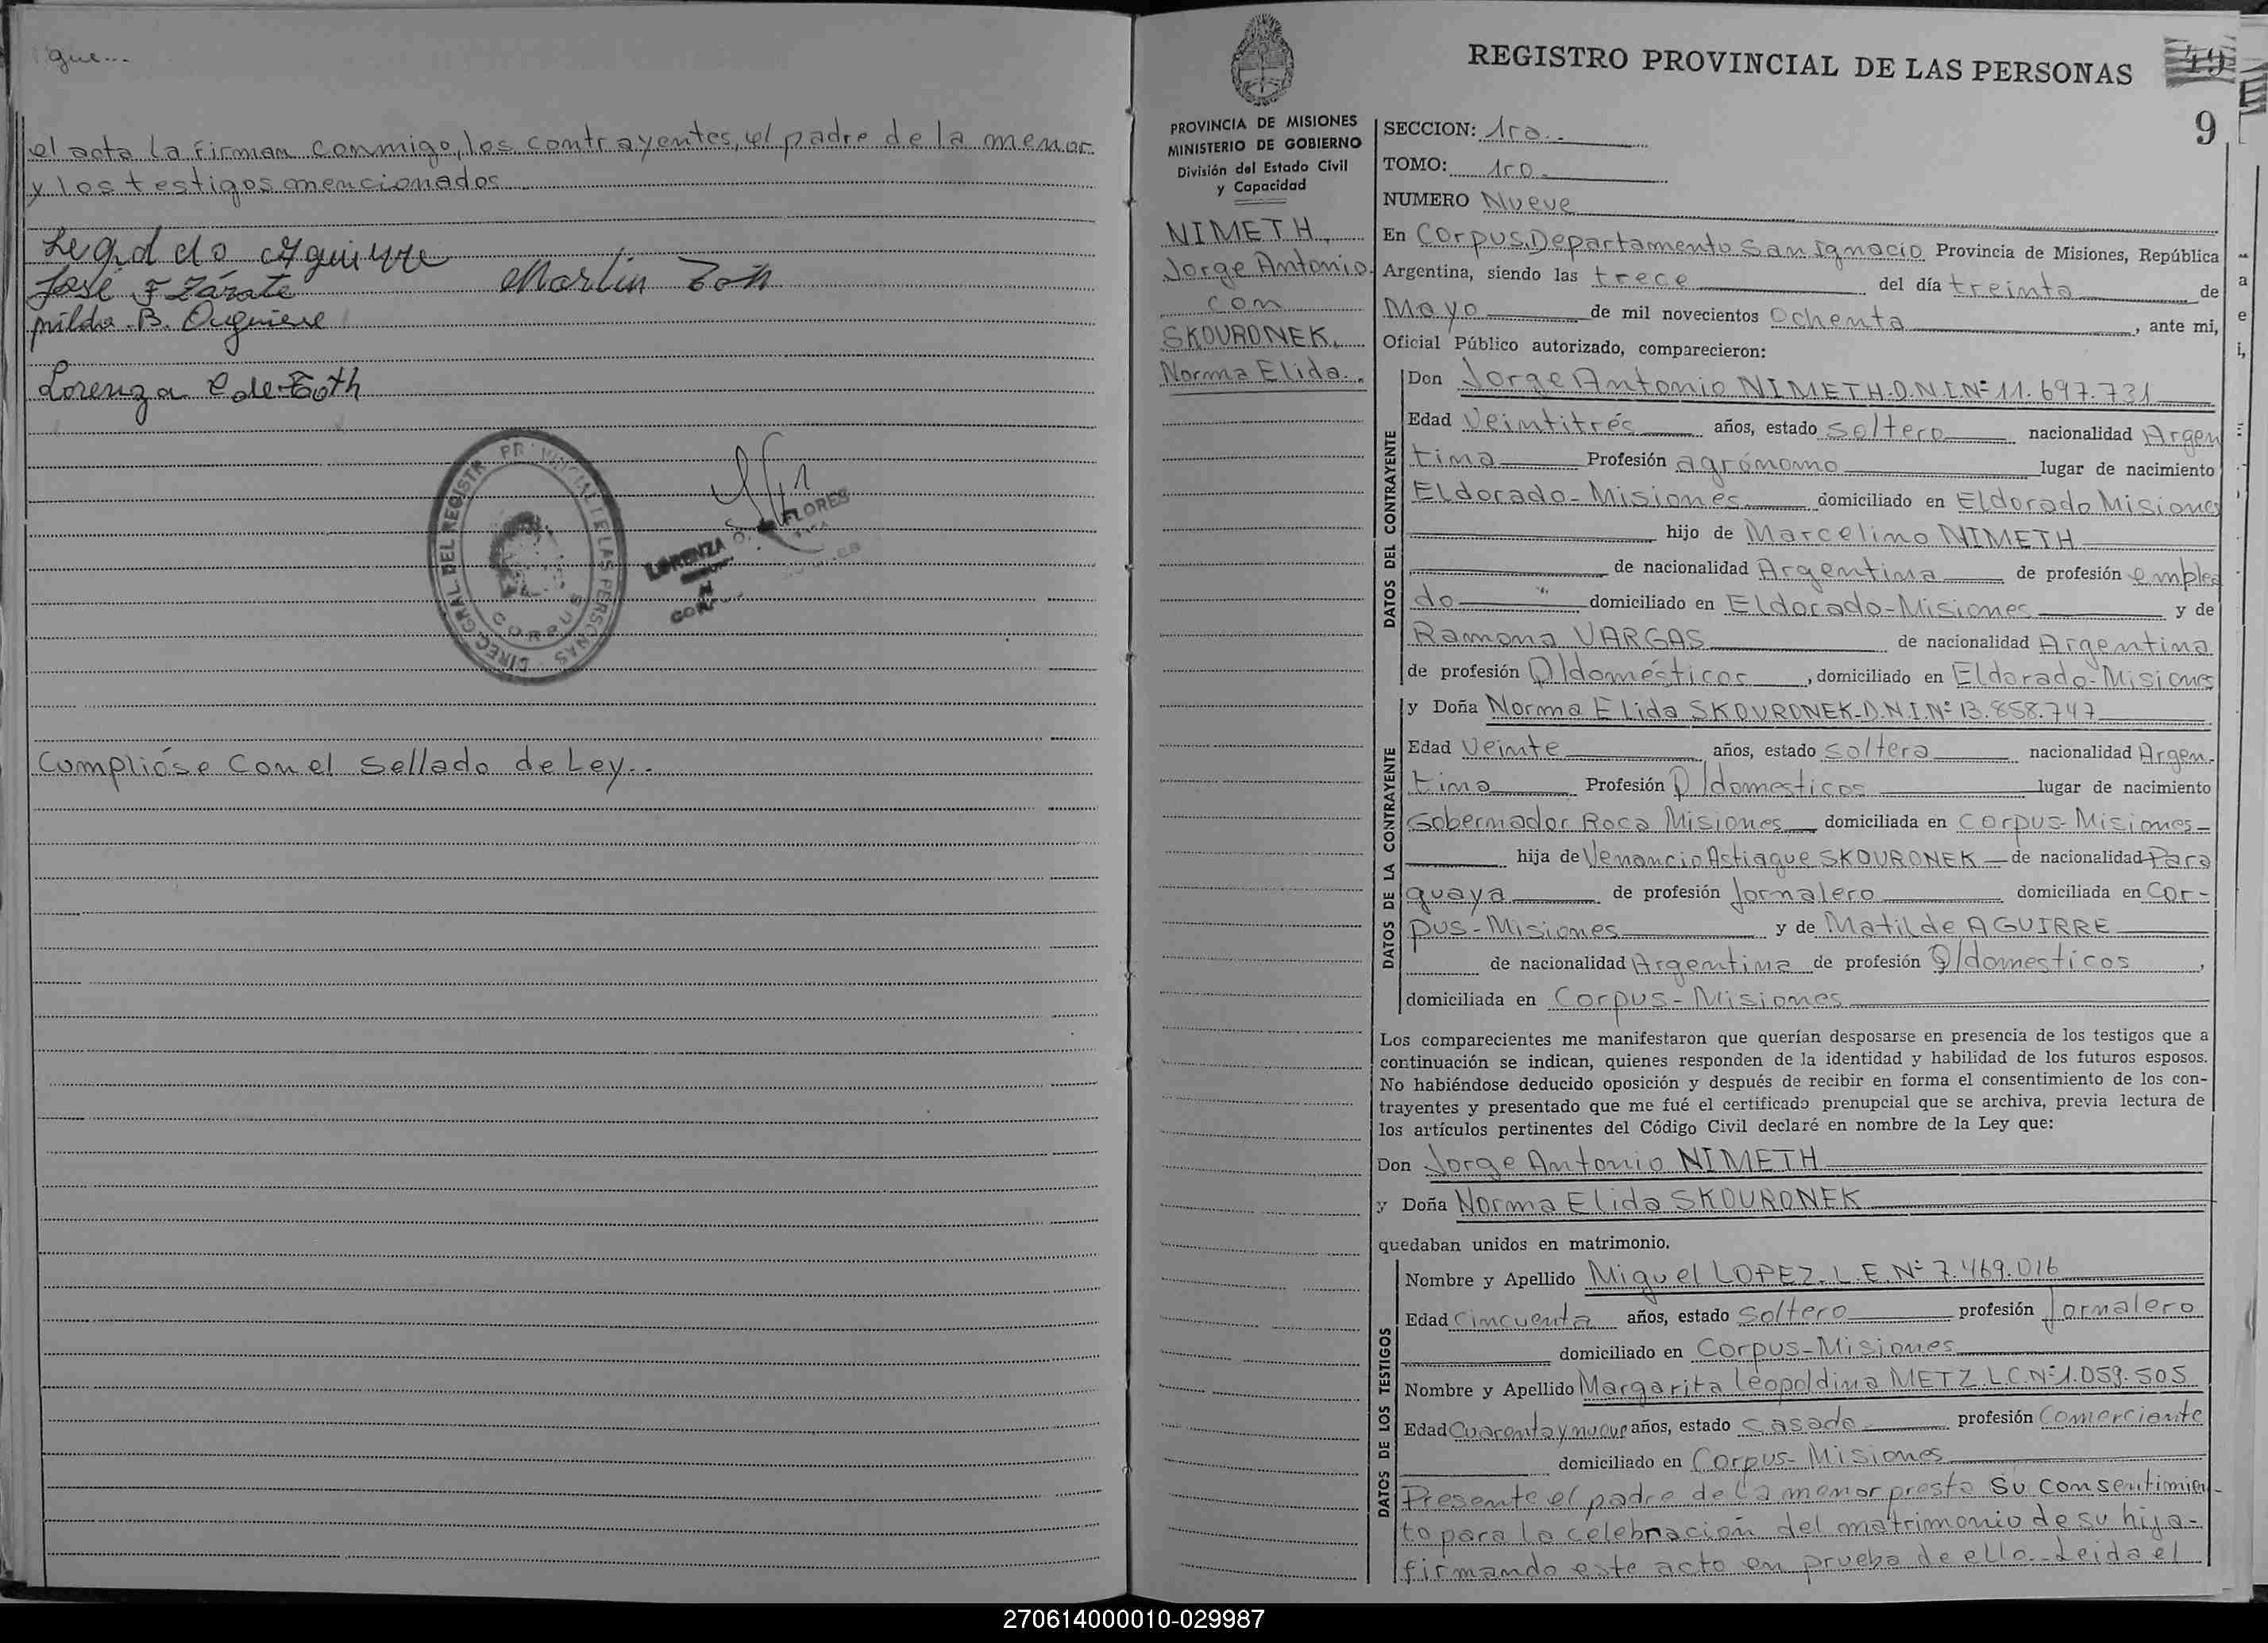 gue...
el acta la firman conmigo, los contrayentes, el padre de la menor
y los testigos mencionados
José F Zárate
Martin Toth
Lorenza C de Toth
DIREC. GRAL DEL REGISTR PROVINCIAL DE LAS PERSONAS
CORPUS
LORENZA O. FLORES
Cumplióse con el sellado de Ley..
REGISTRO PROVINCIAL DE LAS PERSONAS
49
9
PROVINCIA DE MISIONES
MINISTERIO DE GOBIERNO
División del Estado Civil
y Capacidad
NIMETH,
Jorge Antonio.
con
SKOURONEK,
Norma Elida..
SECCION: 1ra..
TOMO: 1ro.
NUMERO Nueve
En Corpus, Departamento San Ignacio Provincia de Misiones, República
Argentina, siendo las trece del día treinta de
Mayo de mil novecientos Ochenta, ante mi,
Oficial Público autorizado, comparecieron:
DATOS DEL CONTRAYENTE
Don Jorge Antonio NIMETH. D.N.I.Nº 11.697.731
Edad Veintitrés años, estado soltero nacionalidad Argen
tina Profesión agrónomo lugar de nacimiento
Eldorado-Misiones domiciliado en Eldorado Misiones
hijo de Marcelino NIMETH
de nacionalidad Argentina de profesión emplea
do domiciliado en Eldorado-Misiones y de
Ramona VARGAS de nacionalidad Argentina
de profesión Q/domésticos, domiciliado en Eldorado-Misiones
DATOS DE LA CONTRAYENTE
y Doña Norma Elida SKOURONEK-D.N.I.Nº 13.858.747
Edad Veinte años, estado soltera nacionalidad Argen-
tina Profesión Q/domesticos lugar de nacimiento
Gobernador Roca Misiones domiciliada en Corpus-Misiones-
hija de Venancio Astiague SKOURONEK de nacionalidad Para
guaya de profesión Jornalero domiciliada en Cor-
pus-Misiones y de Matilde AGUIRRE
de nacionalidad Argentina de profesión Q/domesticos,
domiciliada en Corpus-Misiones
Los comparecientes me manifestaron que querían desposarse en presencia de los testigos que a
continuación se indican, quienes responden de la identidad y habilidad de los futuros esposos.
No habiéndose deducido oposición y después de recibir en forma el consentimiento de los con-
trayentes y presentado que me fué el certificado prenupcial que se archiva, previa lectura de
los artículos pertinentes del Código Civil declaré en nombre de la Ley que:
Don Jorge Antonio NIMETH
y Doña Norma Elida SKOURONEK
quedaban unidos en matrimonio.
DATOS DE LOS TESTIGOS
Nombre y Apellido Miguel LOPEZ-L.E.Nº 7.469.016
Edad Cincuenta años, estado soltero profesión Jornalero
domiciliado en Corpus-Misiones
Nombre y Apellido Margarita Leopoldina METZ.L.C.Nº 1.059.505
Edad Cuarenta y nueve años, estado casada profesión Comerciante
domiciliado en Corpus-Misiones
Presente el padre de la menor presta su consentimien-
to para la celebración del matrimonio de su hija-
firmando este acto en prueba de ello.-Leida el
270614000010-029987